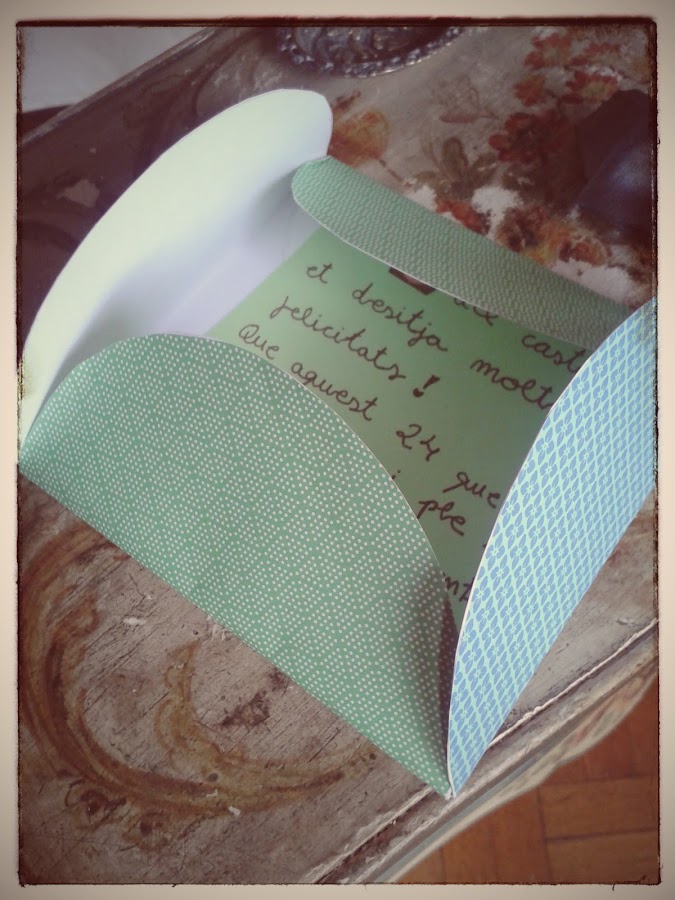 del cast
et desitja molt
felicitats!
Que aquest 24 que
i ple
nt